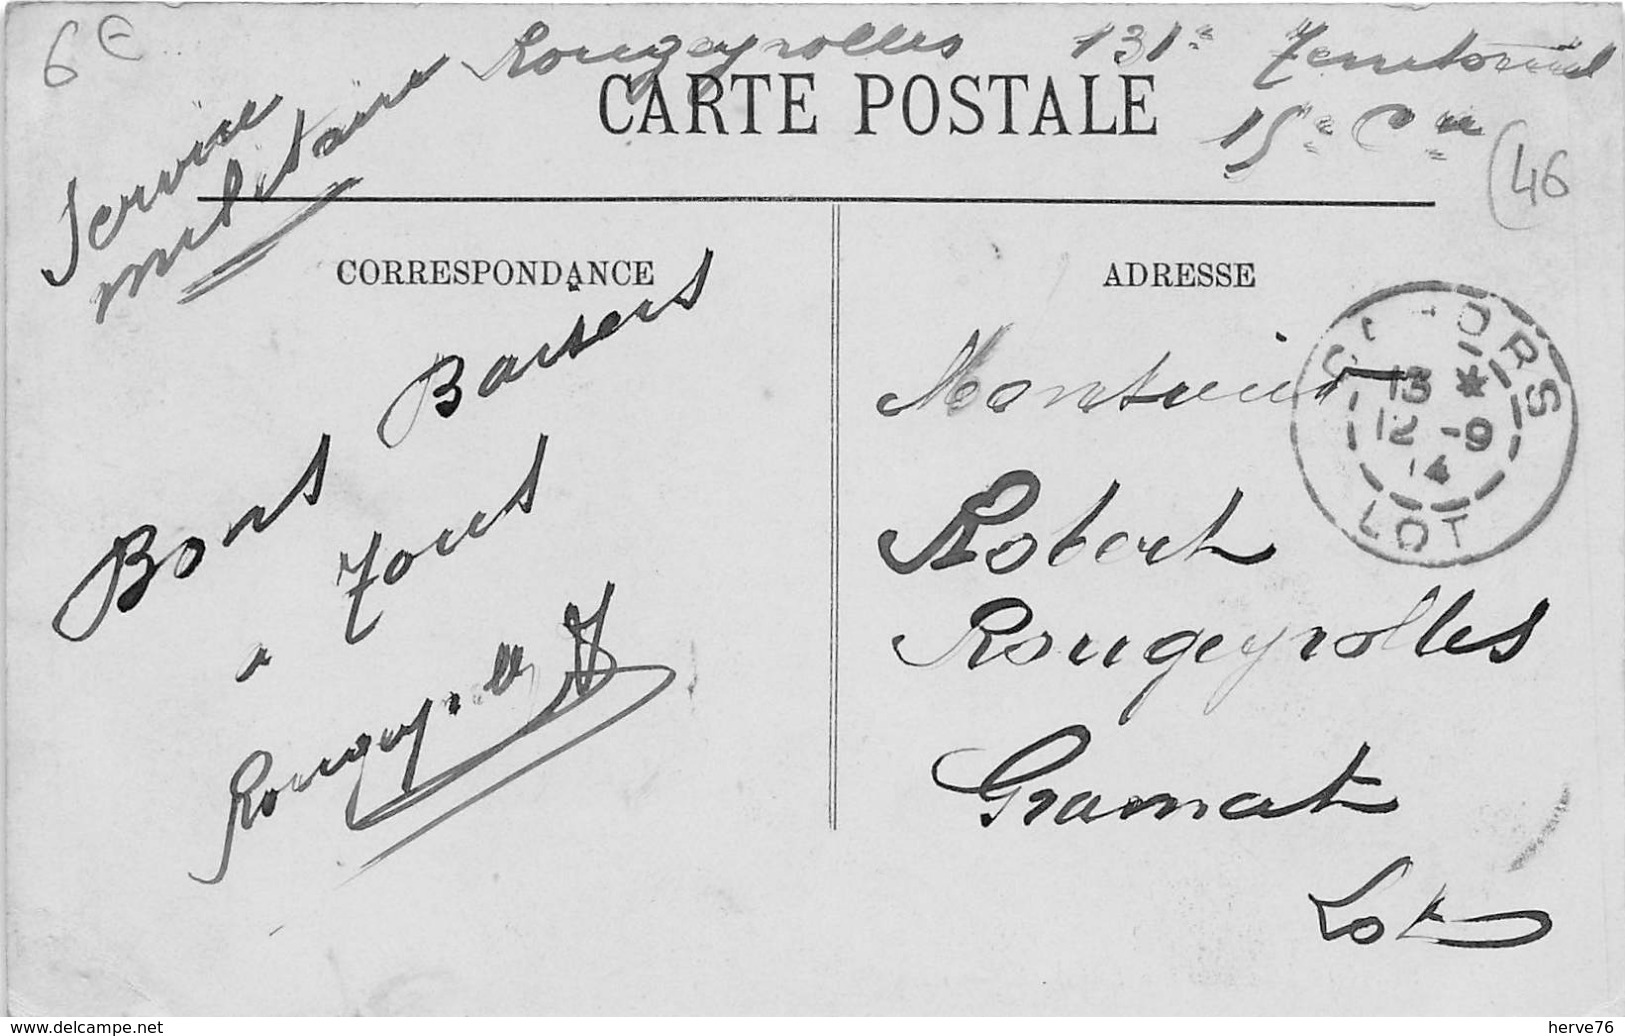 6€
Service
militaire
Rougeyrolles 131e Territorial
15e Cie
CARTE POSTALE
(46
CORRESPONDANCE
Bons Baisers
à Tous
Rougeyrolles J
ADRESSE
Monsieur
Robert
Rougeyrolles
Gramat
Lot
13 *
12 -9
14
LOT
www.delcampe.net
herve76